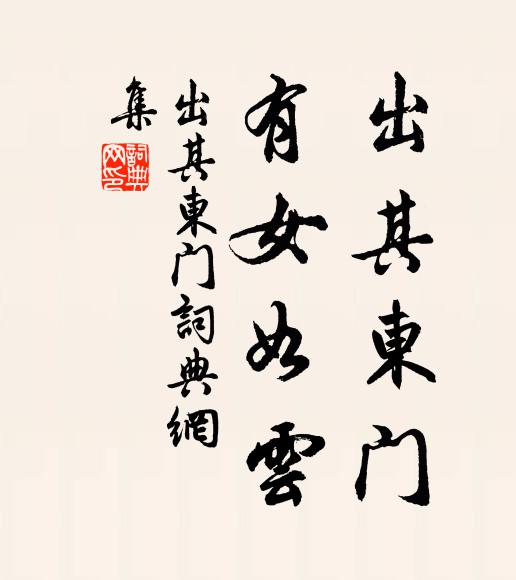 出其東门
有女如雲
出其東门詞典網
集
詞典網印